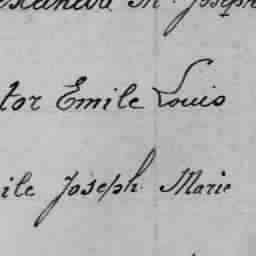 exandre M. Joseph
tor Emile Louis
ile Joseph Marie